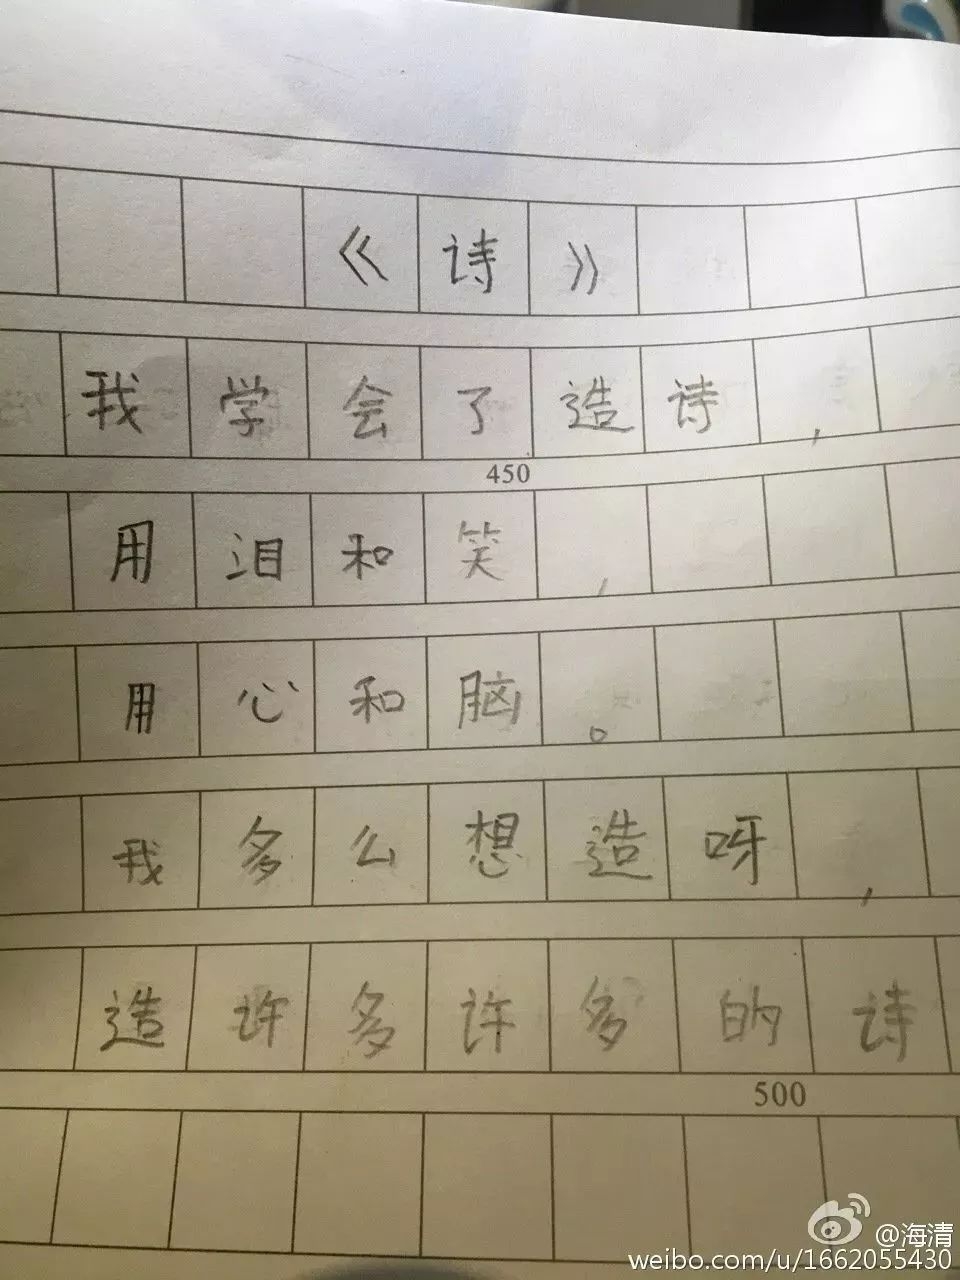 《诗》
我学会了造诗，
450
用泪和笑，
用心和脑。
我多么想造呀，
造许多许多的诗
500
@海清
weibo.com/u/1662055430